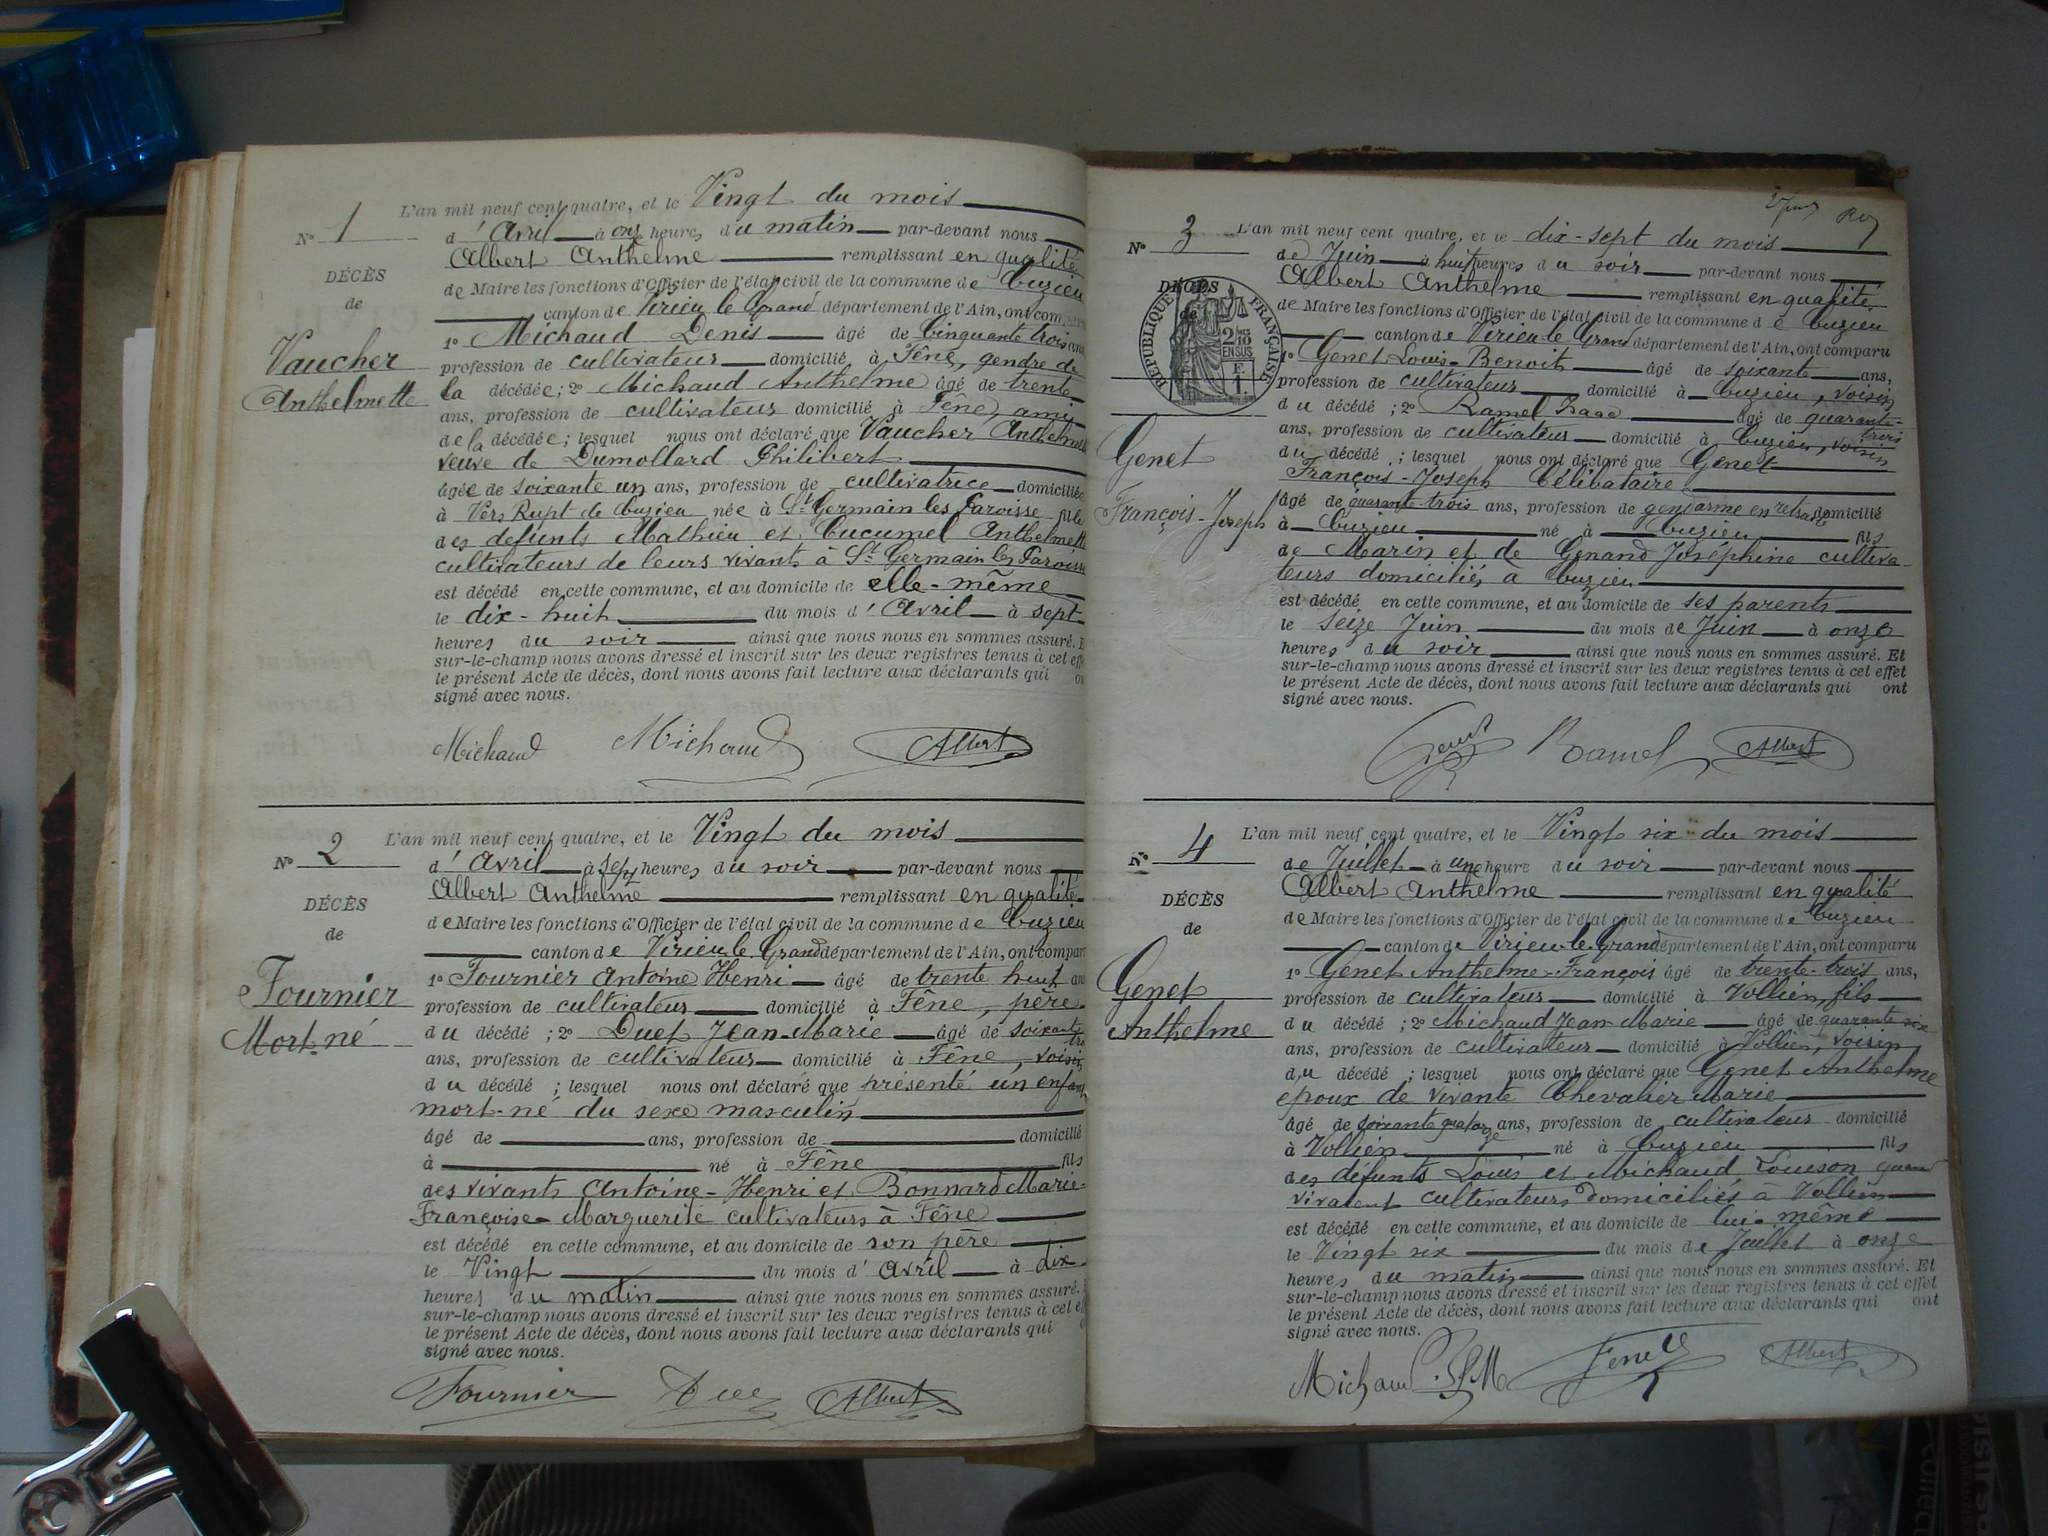 L'an mil neuf cent quatre, et le Vingt du mois
N° 1
d'Avril à onze heures du matin par-devant nous
Albert Anthelme remplissant en qualité
DÉCÈS
de
Vaucher
Anthelmette
de Maire les fonctions d'Officier de l'état civil de la commune de Cuzieu
canton de Virieu le Grand département de l'Ain, ont com
1° Michaud Denis âgé de Cinquante trois ans
profession de cultivateur domicilié à Fêne, gendre de
la décédée; 2° Michaud Anthelme âgé de trente
ans, profession de cultivateur domicilié à Fêne, ami
de la décédée; lesquel nous ont déclaré que Vaucher Anthelmette
veuve de Dumollard Philibert
âgée de soixante un ans, profession de cultivatrice domiciliée
à Vers Rupt de Cuzieu née à St Germain les Paroisse fille
des défunts Mathieu et Cucumel Anthelmette
cultivateurs de leurs vivants à St Germain les Paroisse
est décédé en cette commune, et au domicile de elle-même
le dix-huit du mois d'Avril à sept
heures du soir ainsi que nous nous en sommes assuré. E
sur-le-champ nous avons dressé et inscrit sur les deux registres tenus à cet eff
le présent Acte de décès, dont nous avons fait lecture aux déclarants qui on
signé avec nous.
Michaud Michaud Albert
L'an mil neuf cent quatre, et le Vingt du mois
N° 2
d'Avril à sept heures du soir par-devant nous
Albert Anthelme remplissant en qualité
DÉCÈS
de
Fournier
Mort-né
de Maire les fonctions d'Officier de l'état civil de la commune de Cuzieu
canton de Virieu le Grand département de l'Ain, ont compar
1° Fournier Antoine Henri âgé de trente huit ans
profession de cultivateur domicilié à Fêne, père
du décédé; 2° Duet Jean-Marie âgé de soixante
ans, profession de cultivateur domicilié à Fêne, voisin
du décédé; lesquel nous ont déclaré que présenté un enfant
mort-né du sexe masculin
âgé de ans, profession de domicilié
à né à Fêne fils
des vivants Antoine-Henri et Bonnard Marie-
Françoise-Marguerite cultivateurs à Fêne
est décédé en cette commune, et au domicile de son père
le Vingt du mois d'avril à dix
heures du matin ainsi que nous nous en sommes assuré.
sur-le-champ nous avons dressé et inscrit sur les deux registres tenus à cet e
le présent Acte de décès, dont nous avons fait lecture aux déclarants qui
signé avec nous.
Fournier Duet Albert
L'an mil neuf cent quatre, et le dix-sept du mois
N° 3
de Juin à huit heures du soir par-devant nous
Albert Anthelme remplissant en qualité
DÉCÈS
de
RÉPUBLIQUE FRANÇAISE
2/10
EN SUS
F.
1
Genet
François-Joseph
de Maire les fonctions d'Officier de l'état civil de la commune de Cuzieu
canton de Virieu le Grand département de l'Ain, ont comparu
1° Genet Louis-Benoit âgé de soixante ans,
profession de cultivateur domicilié à Cuzieu, voisin
du décédé; 2° Ramel Isaac âgé de quarante-trois
ans, profession de cultivateur domicilié à Cuzieu, voisin
du décédé; lesquel nous ont déclaré que Genet
François-Joseph Célibataire
âgé de quarante-trois ans, profession de gendarme en retraite domicilié
à Cuzieu né à Cuzieu fils
de Marin et de Genand Joséphine cultiva-
teurs domiciliés à Cuzieu
est décédé en cette commune, et au domicile de ses parents
le Seize Juin du mois de Juin à onze
heures du soir ainsi que nous nous en sommes assuré. Et
sur-le-champ nous avons dressé et inscrit sur les deux registres tenus à cet effet
le présent Acte de décès, dont nous avons fait lecture aux déclarants qui ont
signé avec nous.
Genet Ramel Albert
L'an mil neuf cent quatre, et le Vingt six du mois
N° 4
de Juillet à une heure du soir par-devant nous
Albert Anthelme remplissant en qualité
DÉCÈS
de
Genet
Anthelme
de Maire les fonctions d'Officier de l'état civil de la commune de Cuzieu
canton de Virieu-le-Grand département de l'Ain, ont comparu
1° Genet Anthelme-François âgé de trente-trois ans,
profession de cultivateur domicilié à Vollien, fils
du décédé; 2° Michaud Jean-Marie âgé de quarante six
ans, profession de cultivateur domicilié à Vollien, voisin
du décédé; lesquel nous ont déclaré que Genet Anthelme
époux de vivante Chevalier Marie
âgé de soixante quatorze ans, profession de cultivateur domicilié
à Vollien né à Cuzieu fils
des défunts Louis et Michaud Louison quand
vivaient cultivateurs domiciliés à Vollien
est décédé en cette commune, et au domicile de lui-même
le Vingt six du mois de Juillet à onze
heures du matin ainsi que nous nous en sommes assuré. Et
sur-le-champ nous avons dressé et inscrit sur les deux registres tenus à cet effet
le présent Acte de décès, dont nous avons fait lecture aux déclarants qui ont
signé avec nous.
Michaud Genet Albert